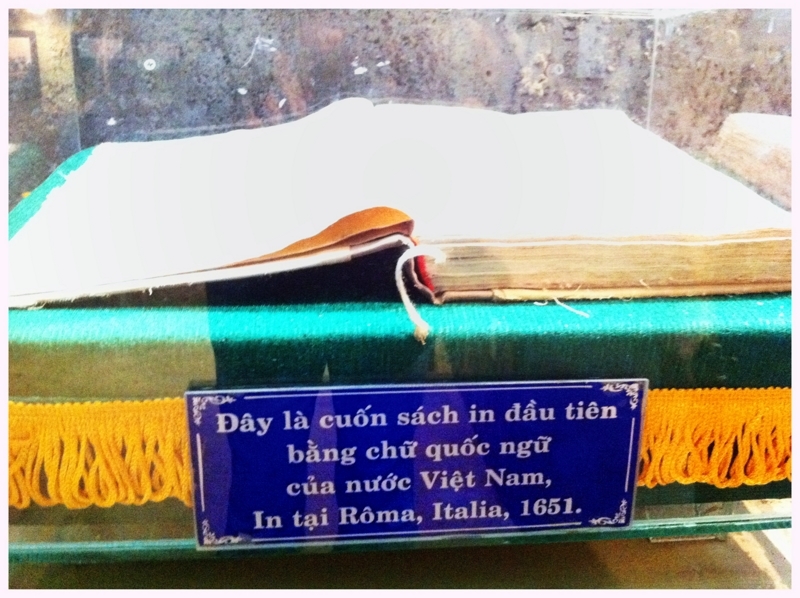 Đây là cuốn sách in đầu tiên
bằng chữ quốc ngữ
của nước Việt Nam,
In tại Rôma, Italia, 1651.